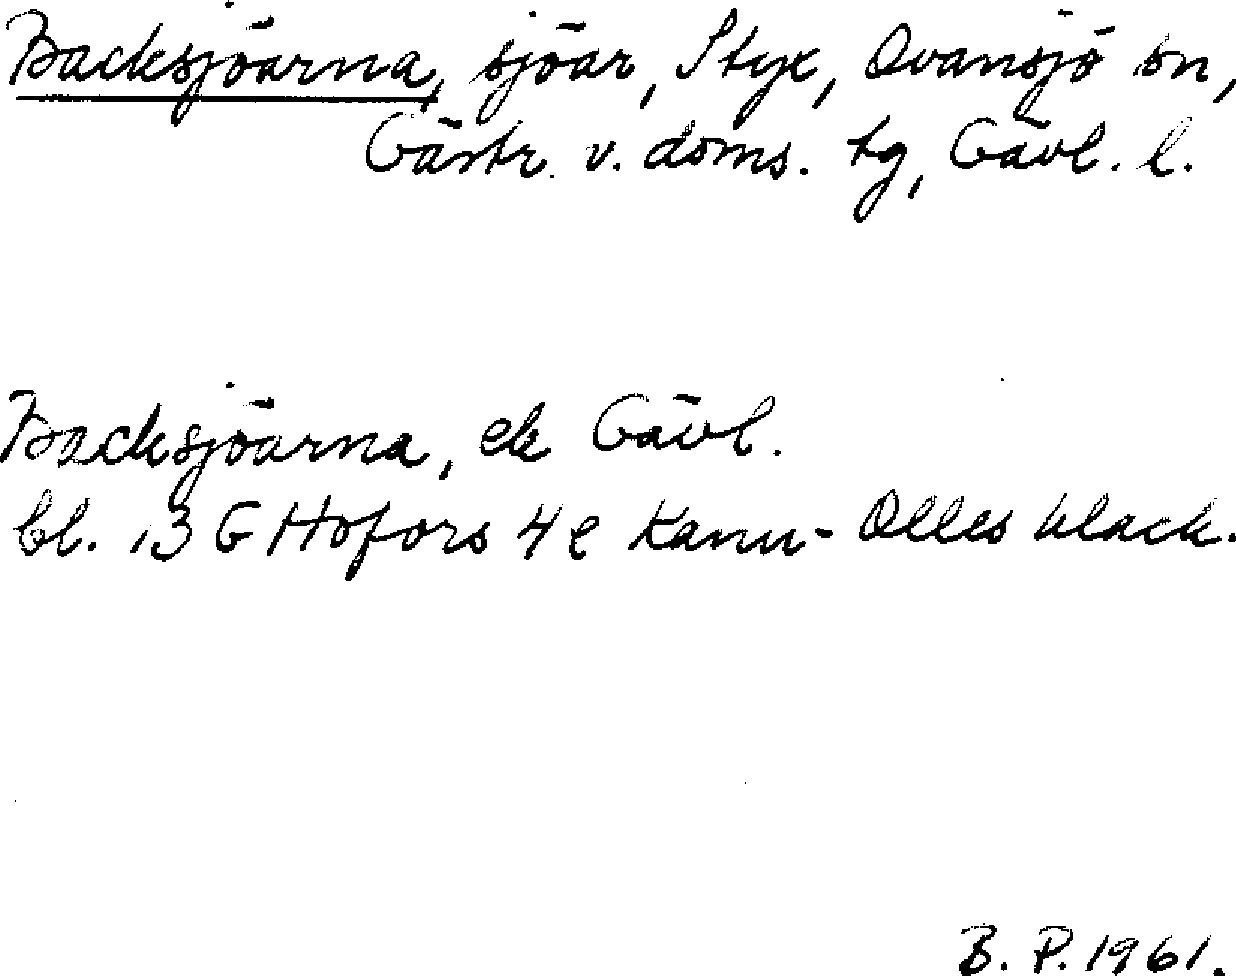 Backsjöarna, sjöar, Styx, Ovansjö sn,
Gästr. v. doms. tg, Gävl. l.
Backsjöarna, ek Gävl.
bl. 13 G Hofors 4 e Kanu- Olles klack.
B. P. 1961.